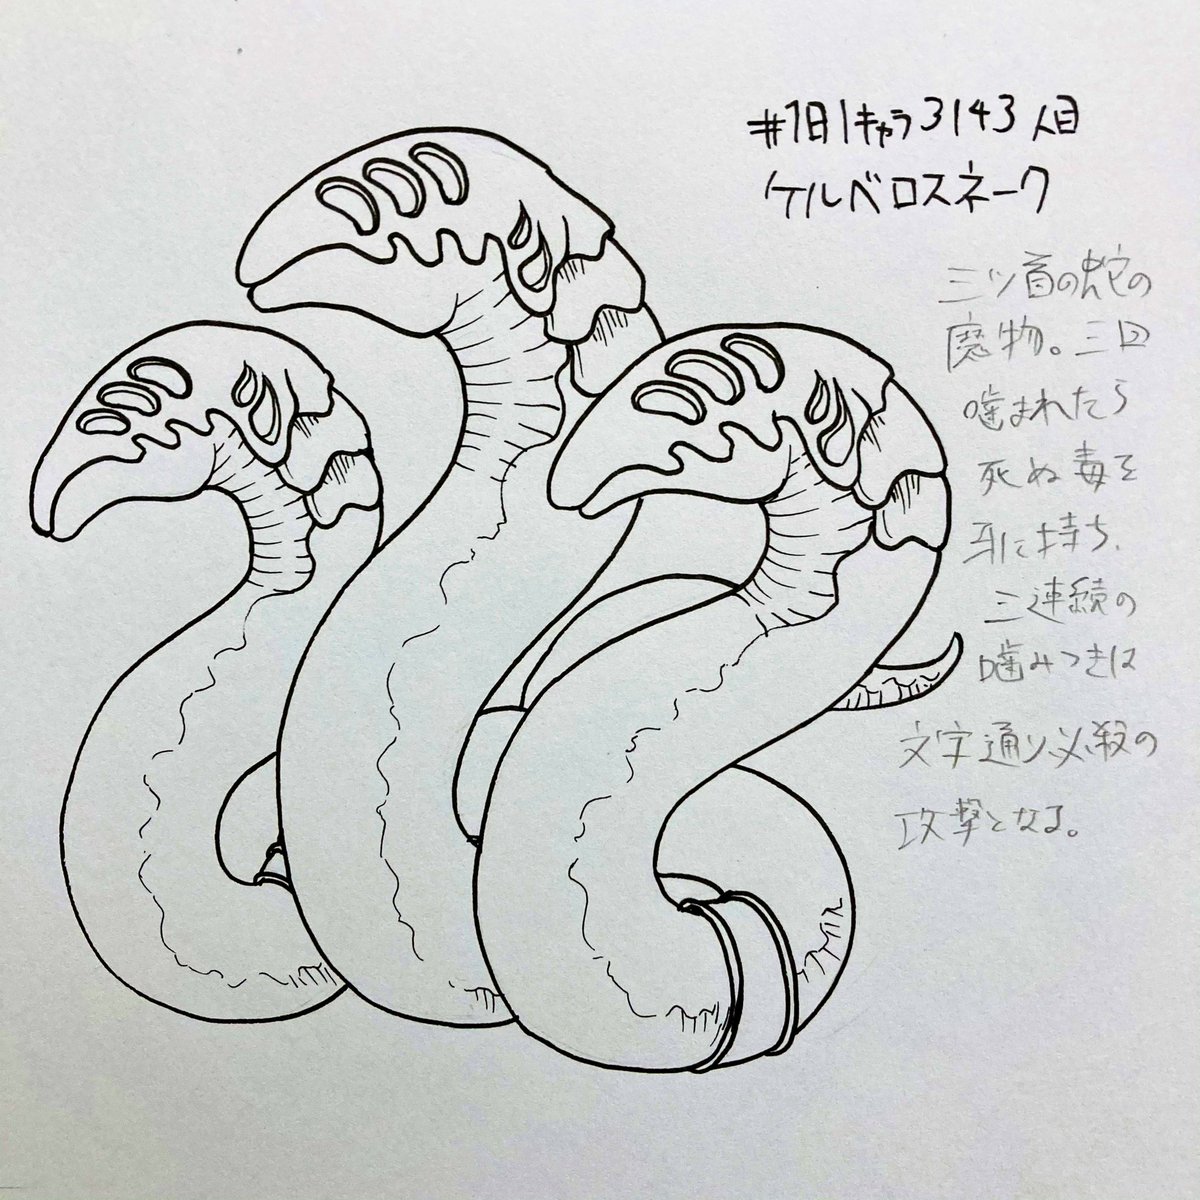 #1日1キャラ3143人目
ケルベロスネーク
三ツ首の蛇の
魔物。三回
噛まれたら
死ぬ毒を
牙に持ち、
三連続の
噛みつきは
文字通り必殺の
攻撃となる。